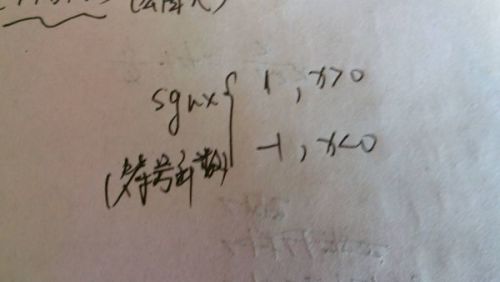 sgnx { 1 , x>0
-1 , x<0
(符号函数)